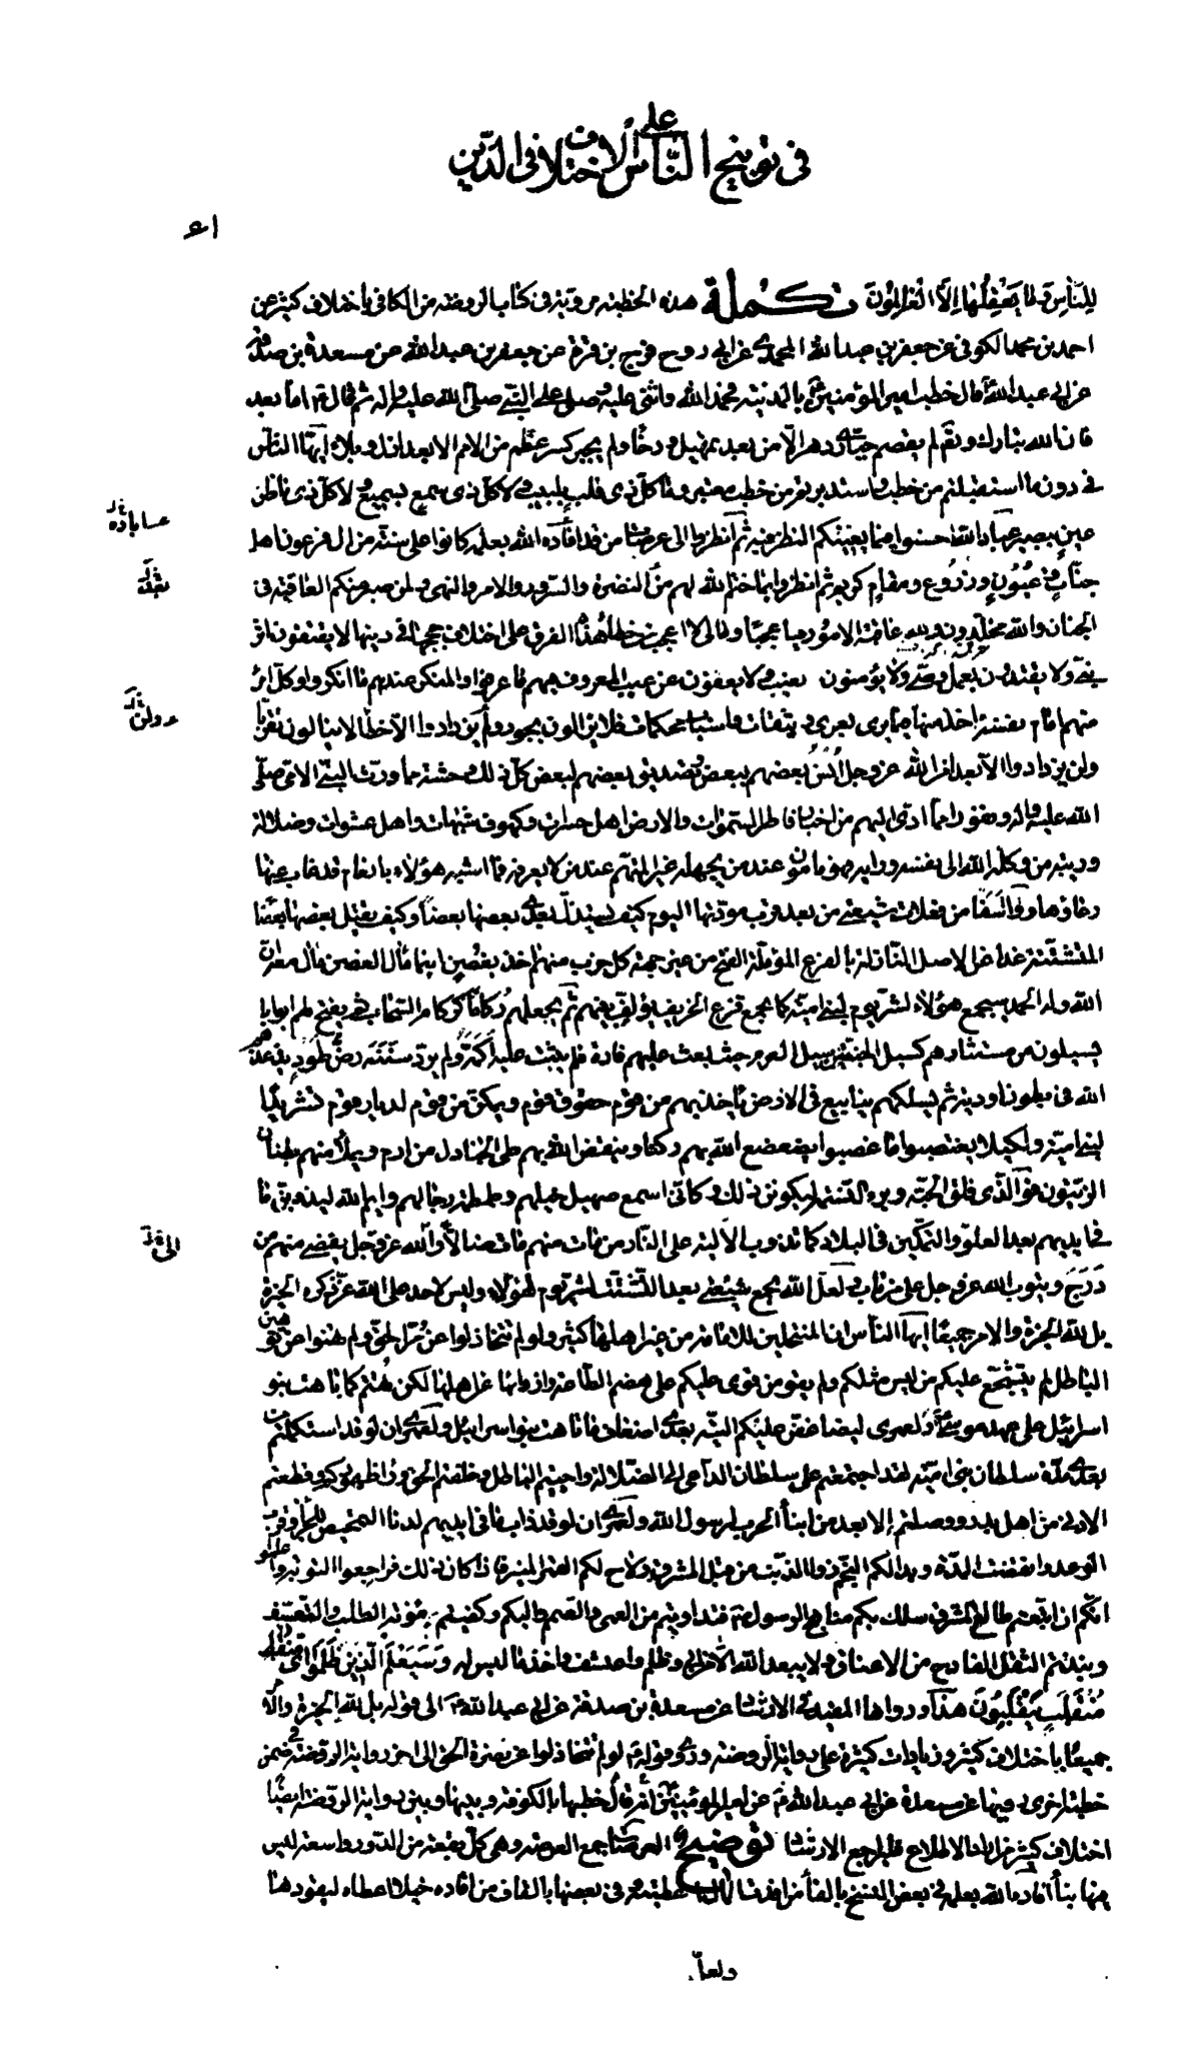 في توبيخ الناس على الاختلاف في الدين
للناس وما يعقلها إلا العالمون تكملة هذه الخطبة مروية في كتاب الروضة من الكافي باختلاف كثير عن
احمد بن محمد الكوفي عن جعفر بن عبدالله المحمدي عن ابي روح فرج بن قرة عن جعفر بن عبدالله عن مسعدة بن صدقة
عن ابي عبدالله قال خطب امير المؤمنين بالمدينة فحمد الله واثنى عليه وصلى على النبي صلى الله عليه واله ثم قال اما بعد
فان الله تبارك وتعالى لم يقصم جباري دهر الا من بعد تمهيل ورخاء ولم يجبر كسر عظم من الامم الا بعد ازل وبلاء ايها الناس
في دون ما استقبلتم من خطب واستدبرتم من خطب معتبر وما كل ذي قلب بلبيب ولا كل ذي سمع بسميع ولا كل ذي ناظر
عين ببصير عباد الله احسنوا فيما يعنيكم النظر فيه ثم انظروا الى عرصات من قد اقاده الله بعلمه كانوا على سنة من ال فرعون اهل
جنات وعيون وزروع ومقام كريم ثم انظروا بما ختم الله لهم من النضرة والسرور والامر والنهي ولمن صبر منكم العاقبة في
الجنان والله مخلدون ولله عاقبة الامور فيا عجبا ومالي لا اعجب من خطاء هذه الفرق على اختلاف حججها في دينها لا يقتفون اثر
نبي ولا يقتدون بعمل وصي ولا يؤمنون بغيب ولا يعفون عن عيب المعروف فيهم ما عرفوا والمنكر عندهم ما انكروا وكل امرئ
منهم امام نفسه اخذ منها فيما يرى بعرى وثيقات واسباب محكمات فلا يزالون بجور ولم يزدادوا الا خطأ لا ينالون تقربا
ولن يزدادوا الا بعدا من الله عز وجل انس بعضهم ببعض وتصديق بعضهم لبعض كل ذلك وحشة مما ورث النبي الامي صلى
الله عليه واله ونفورا مما ادى اليهم من اخبار فاطر السموات والارض اهل حسرات وكهوف شبهات واهل عشوات وضلالة
وريبة من وكله الله الى نفسه ورايه فهو مأمون عند من يجهله غير المتهم عند من لا يعرفه فما اشبه هؤلاء بانعام قد غاب عنها
رعاؤها ووا اسفا من فعلات شيعتي من بعد قرب مودتها اليوم كيف يستذل بعدي بعضها بعضا وكيف يقتل بعضها بعضا
المتشتتة غدا عن الاصل النازلة بالفرع المؤملة الفتح من غير جهته كل حزب منهم اخذ بغصن اينما مال الغصن مال معه ان
الله وله الحمد سيجمع هؤلاء لشر يوم لبني امية كما يجمع قزع الخريف يؤلف بينهم ثم يجعلهم ركاما كركام السحاب ثم يفتح لهم ابوابا
يسيلون من مستثارهم كسيل الجنتين سيل العرم حيث بعث عليهم فارة فلم يثبت عليه اكمة ولم يرد سننه رض طود يذعذعهم
الله في بطون اودية ثم يسلكهم ينابيع في الارض يأخذ بهم من قوم حقوق قوم ويمكن من قوم لديار قوم تشريدا
لبني امية ولكيلا يغتصبوا ما غصبوا يضعضع الله بهم ركنا وينقض الله بهم طي الجنادل من ارم ويملأ منهم بطنان
الزيتون فو الذي فلق الحبة وبرء النسمة ليكونن ذلك وكاني اسمع صهيل خيلهم وطمطمة رجالهم وايم الله ليذوبن ما
في ايديهم بعد العلو والتمكين في البلاد كما تذوب الالية على النار من مات منهم مات ضالا والى الله عز وجل يفضي منهم من
درج ويتوب الله عز وجل على من تاب ولعل الله يجمع شيعتي بعد التشتت لشر يوم لهؤلاء وليس لاحد على الله عز ذكره الخيرة
بل لله الخيرة والامر جميعا ايها الناس ان المنتحلين للامامة من غير اهلها كثير ولو لم تتخاذلوا عن مر الحق ولم تهنوا عن توهين
الباطل لم يتشجع عليكم من ليس مثلكم ولم يقو من قوى عليكم على هضم الطاعة وازوائها عن اهلها لكن تهتم كما تاهت بنو
اسرائيل على عهد موسى ولعمري ليضاعفن عليكم التيه بعدي اضعاف ما تاهت بنو اسرائيل ولعمري ان لو قد استكملتم
بعدي مدة سلطان بني امية لقد اجتمعتم على سلطان الداعي الى الضلالة واحييتم الباطل وخلفتم الحق وراء ظهوركم وقطعتم
الادنى من اهل بدر ووصلتم الابعد من ابناء الحرب لرسول الله ولعمري ان لو قد ذاب ما في ايديهم لدنا التمحيص للجزاء وقرب
الوعد وانقضت المدة وبدا لكم النجم ذو الذنب من قبل المشرق ولاح لكم القمر المنير فاذا كان ذلك فراجعوا التوبة واعلموا
انكم ان اتبعتم طالع المشرق سلك بكم مناهج الرسول فتداويتم من العمى والصمم والبكم وكفيتم مؤنة الطلب والتعسف
ونبذتم الثقل الفادح من الاعناق ولا يبعد الله الا من ابى وظلم واعتسف واخذ ما ليس له وسيعلم الذين ظلموا اي منقلب
منقلب ينقلبون هذا ورواها المفيد في الارشاد عن مسعدة بن صدقة عن ابي عبدالله الى قوله بل لله الخيرة والامر
جميعا باختلاف كثير وزيادات كثيرة على رواية الروضة وروى قوله لو لم تتخاذلوا عن نصرة الحق الى اخر رواية الروضة في ضمن
خطبة اخرى فيها عن مسعدة عن ابي عبدالله عن امير المؤمنين انه قال خطبها بالكوفة وبينها وبين رواية الروضة ايضا
اختلاف كثير من اراد الاطلاع فليراجع الارشاد توضيح العرصات جمع العرصة وهي كل بقعة من الدور واسعة ليس
فيها بناء اقاده الله بعلمه في بعض النسخ بالفاء من افدت المال اعطيته وفي بعضها بالقاف من اقاده خيلا اعطاه ليقودها
ولعل